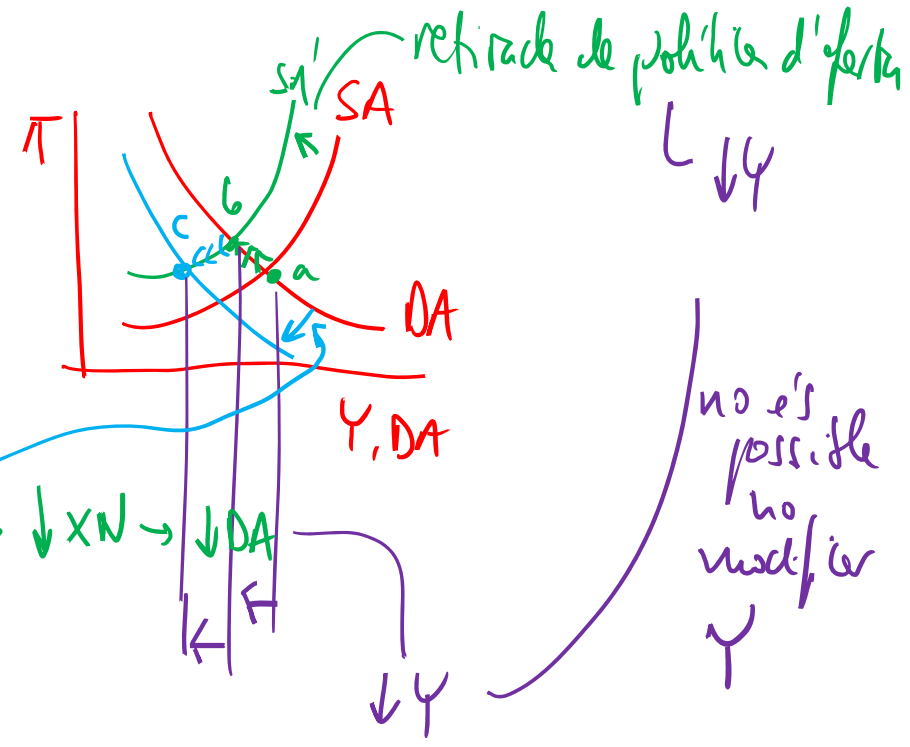 retirada de política d'oferta
SA'
SA
π
↓Y
b
c
a
DA
Y, DA
no és
possible
no
modificar
Y
↓ XN → ↓ DA
↓ Y